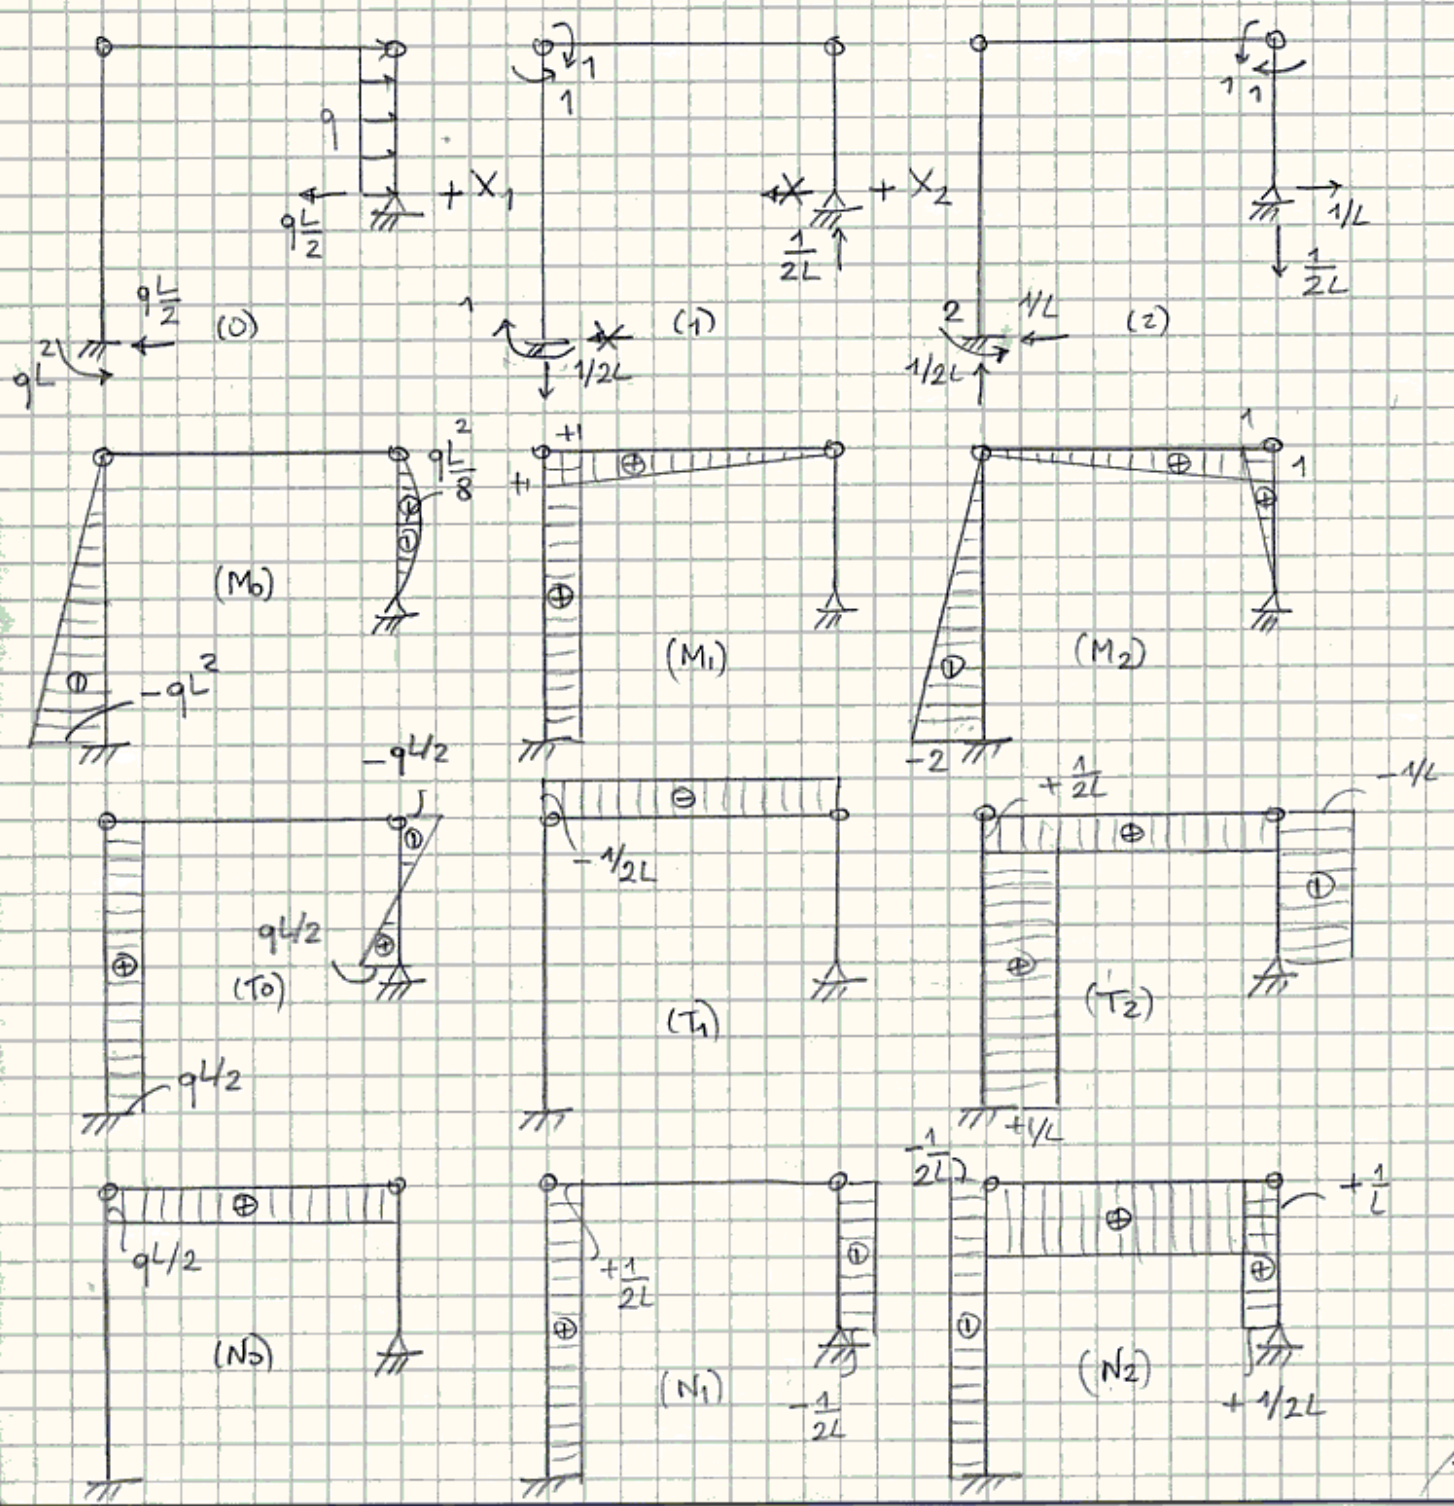 q
qL/2
+ X₁
qL/2
qL²
(0)
1
1
1/2L
+ X₂
1
1/2L
(1)
1 1
1/L
1/2L
2
1/L
1/2L
(2)
qL²/8
-qL²
(M₀)
+1
+1
(M₁)
1
1
-2
(M₂)
-qL/2
qL/2
(T₀)
qL/2
-1/2L
(T₁)
+1/2L
-1/L
(T₂)
+1/L
qL/2
(N₀)
+1/2L
(N₁)
-1/2L
-1/2L
+1/L
(N₂)
+1/2L